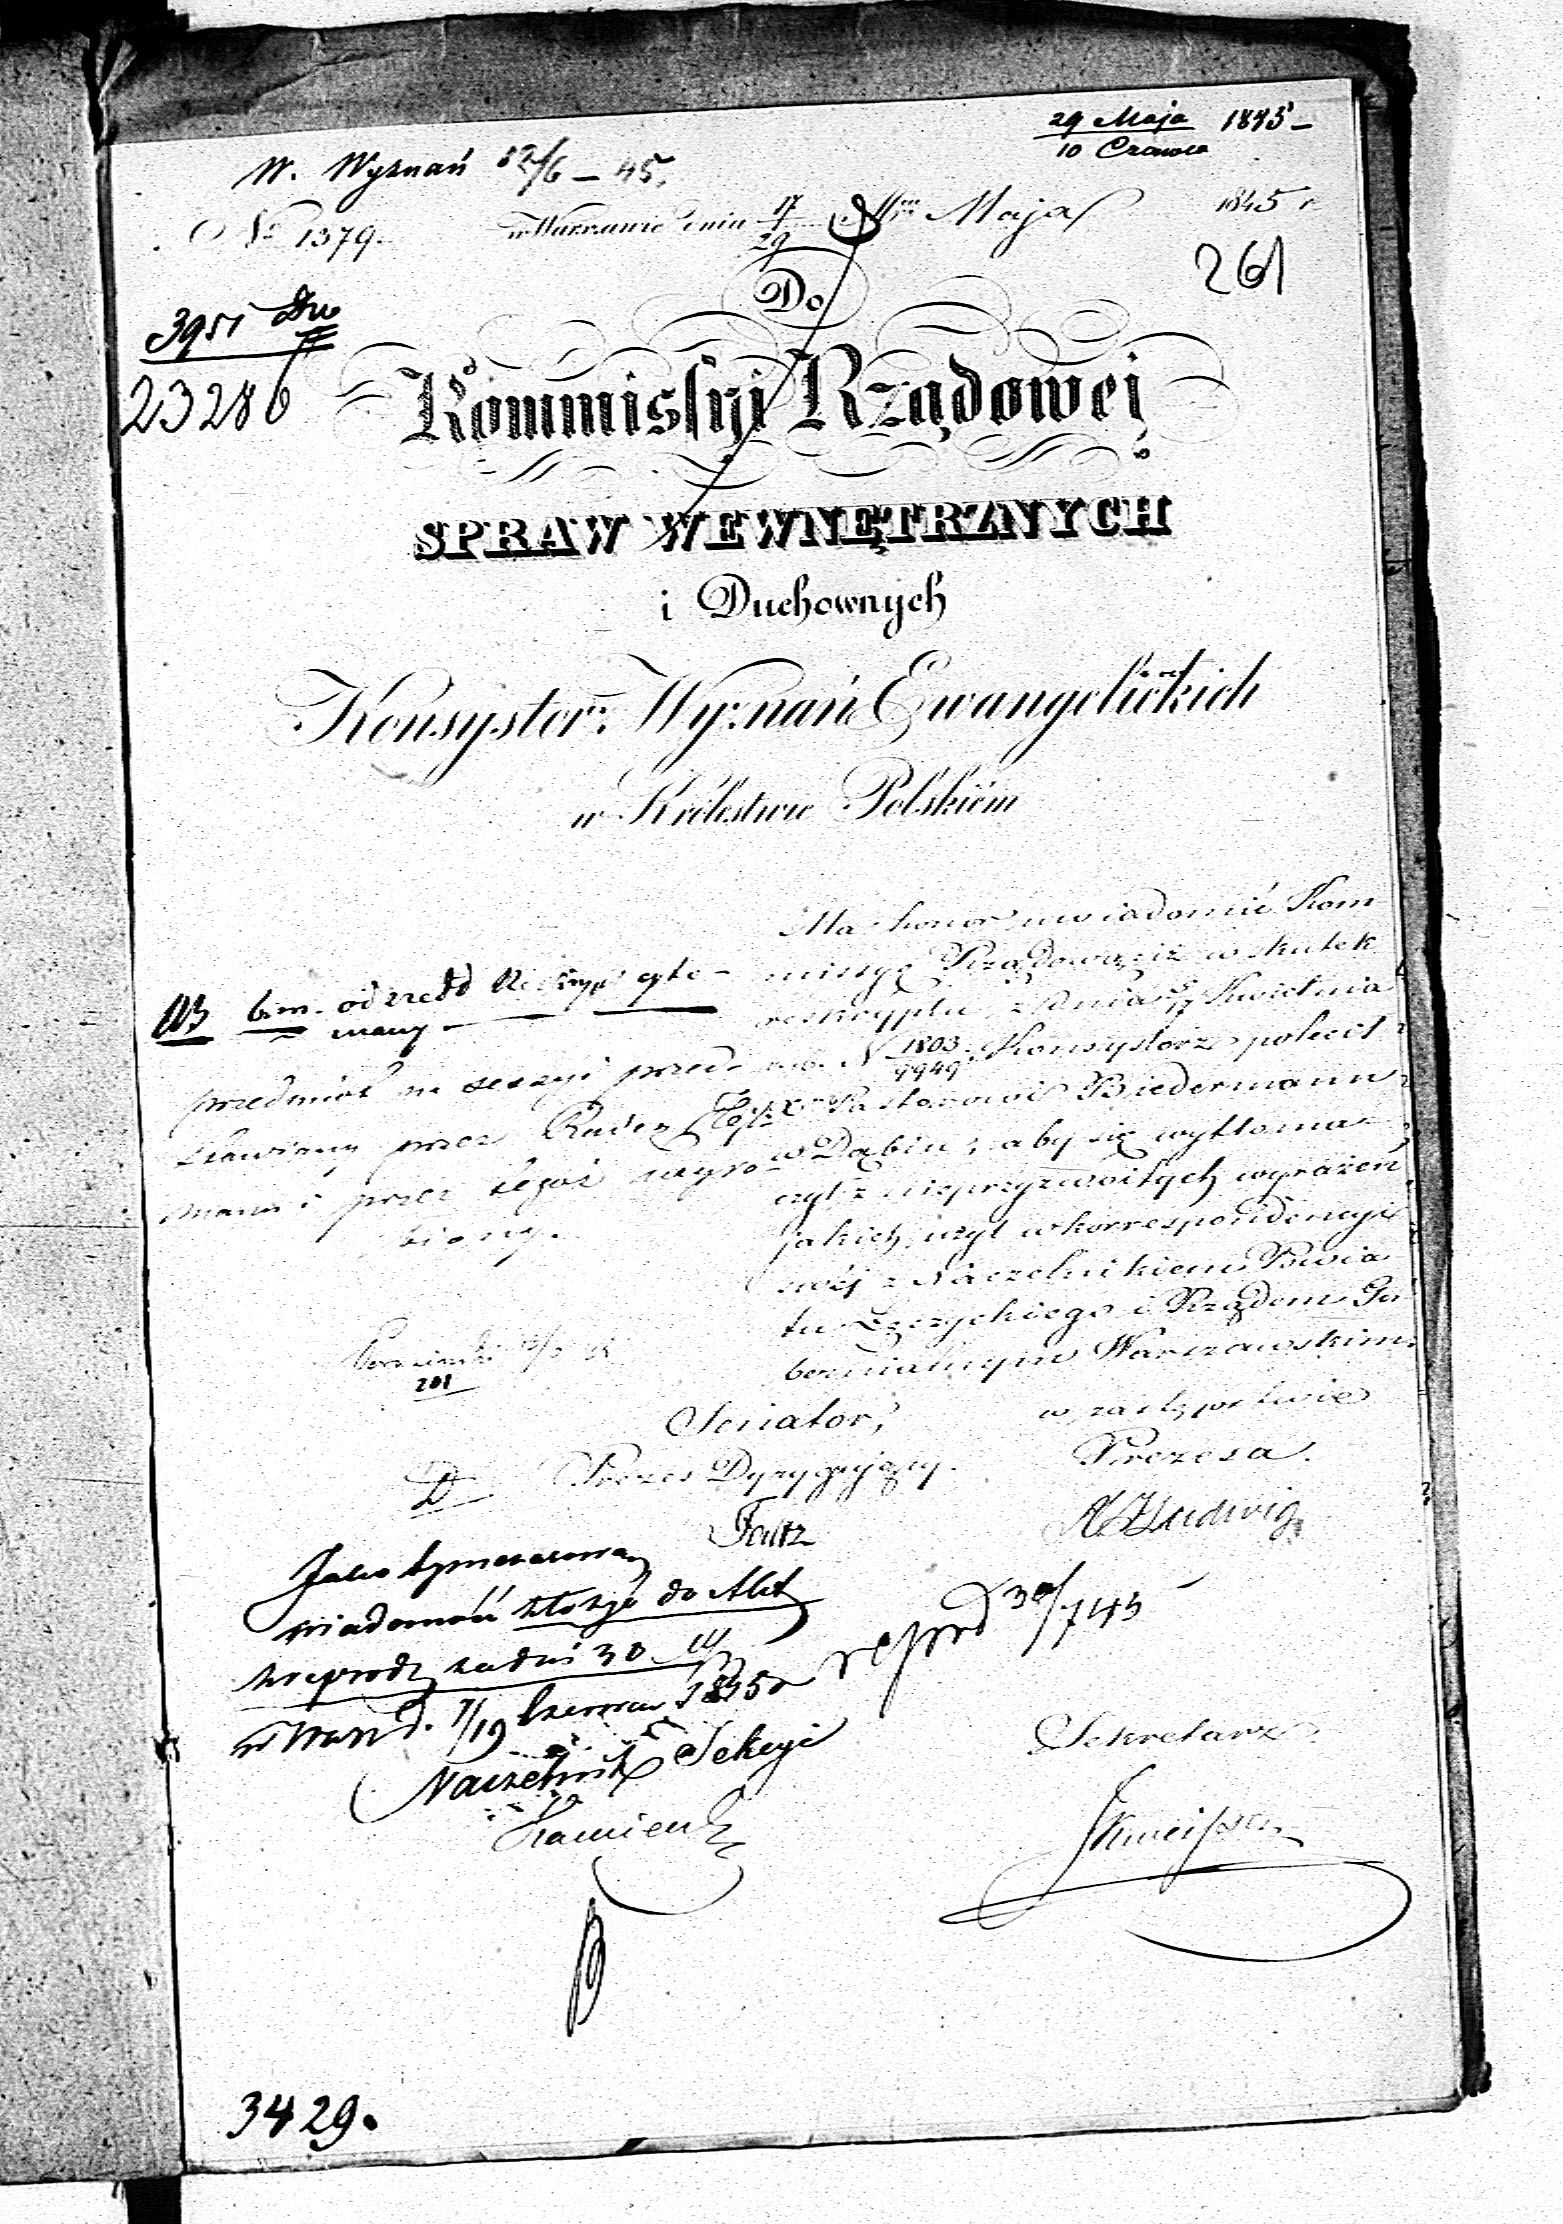 29 Maja
10 Czerwca 1845 —
W. Wyznań 12/6 — 45.
№ 1379. w Warszawie dnia 17/29 Maja 1845 r
261
3951
23286
Do
Kommissyi Rządowej
SPRAW WEWNĘTRZNYCH
i Duchownych
Konsystorz Wyznań Ewangelickich
w Królestwie Polskiém
Ma honor uwiadomić Kom
missyę Rządową, iż w skutek
reskryptu z dnia 5/17 Kwietnia
r. b. N 1803/9949 Konsystorz polecił
Pastorowi Biedermann
w Dąbiu, aby się wytłoma
czył z nieprzyzwoitych wyrażeń,
jakich użył w korrespondencyi
swéj z Naczelnikiem Powia
tu Łęczyckiego i Rządem Gu
bernialnym Warszawskim.
NB b. m. odszedł
przedmiot na sessyi przed
stawiany przez Radcę
i przez tegoż wyro
biony.
201
Senator,
Prezes Dyrygujący.
w zastępstwie
Prezesa.
Ludwig
Jako tymczasową
wiadomość złożyć do Akt
30
w Warsz d. 7/19 Czerwca 1845 r
Naczelnik Sekcyi
reprod 30/7 45
Sekretarz
3429.